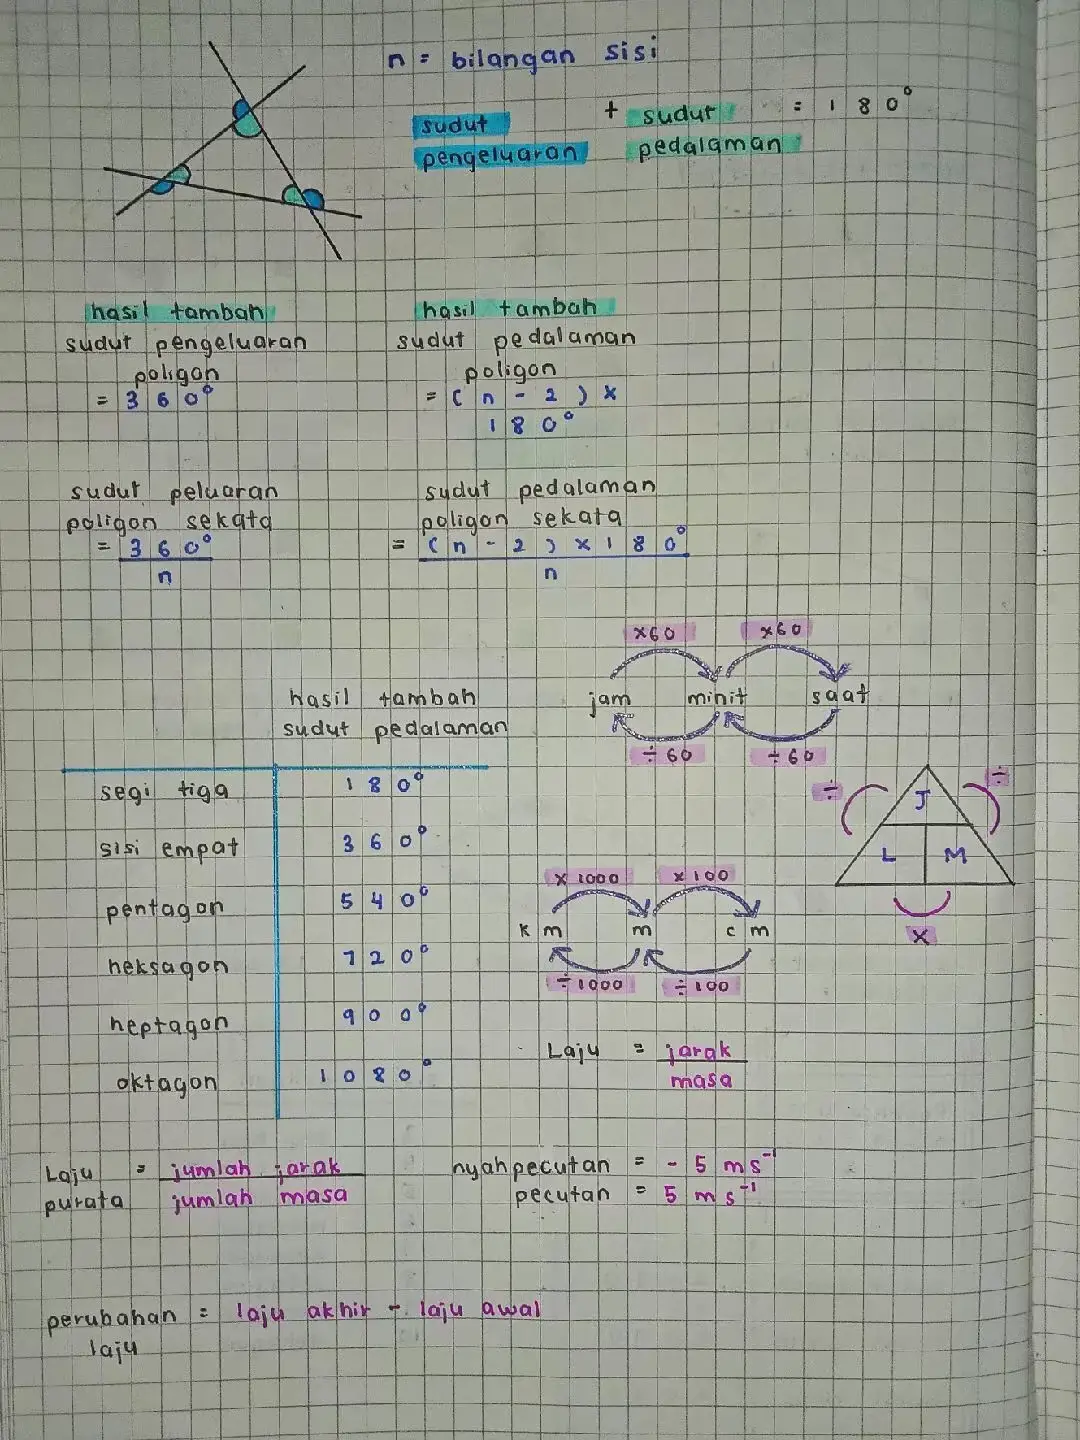 n = bilangan sisi
sudut pengeluaran + sudut pedalaman = 180°
hasil tambah
sudut pengeluaran
poligon
= 360°
hasil tambah
sudut pedalaman
poligon
= (n - 2) ×
180°
sudut peluaran
poligon sekata
= 360°
n
sudut pedalaman
poligon sekata
= (n - 2) × 180°
n
×60 ×60
jam minit saat
÷60 ÷60
hasil tambah
sudut pedalaman
segi tiga 180°
sisi empat 360°
pentagon 540°
heksagon 720°
heptagon 900°
oktagon 1080°
÷ ÷
J
L M
×
×1000 ×100
km m cm
÷1000 ÷100
Laju = jarak
masa
Laju purata = jumlah jarak
jumlah masa
nyahpecutan = - 5 ms⁻¹
pecutan = 5 ms⁻¹
perubahan = laju akhir - laju awal
laju